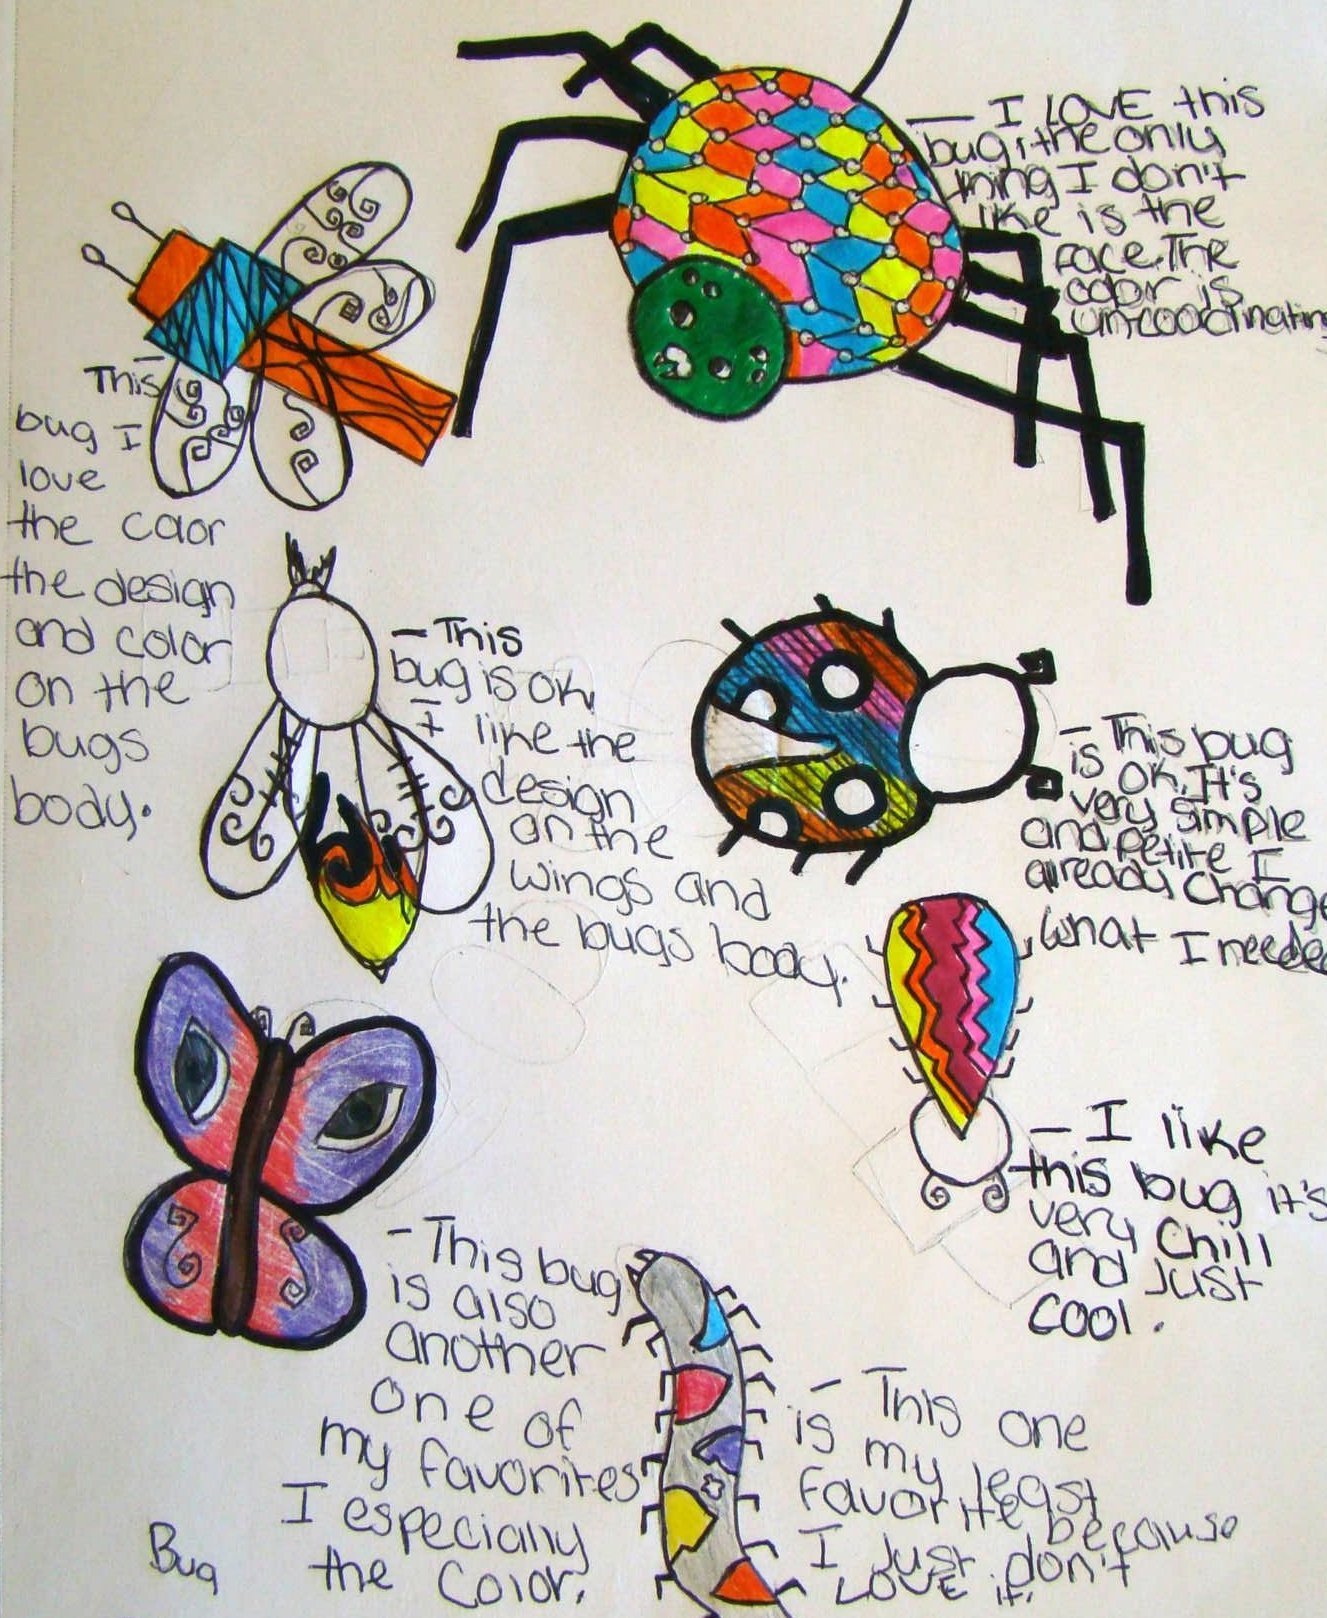 — I LOVE this
bug, the only
thing I don't
like is the
face. The
color is
un-coordinating
— This
bug I
love
the color
the design
and color
on the
bugs
body.
— This
bug is ok,
I like the
design
on the
wings and
the bugs body.
— This bug
is ok, It's
very simple
and petite I
already change
what I needed
— I like
this bug it's
very chill
and just
cool.
— This bug
is also
another
one of
my favorites
I especially
the color.
— This one
is my least
favorite because
I just don't
LOVE it.
Bug